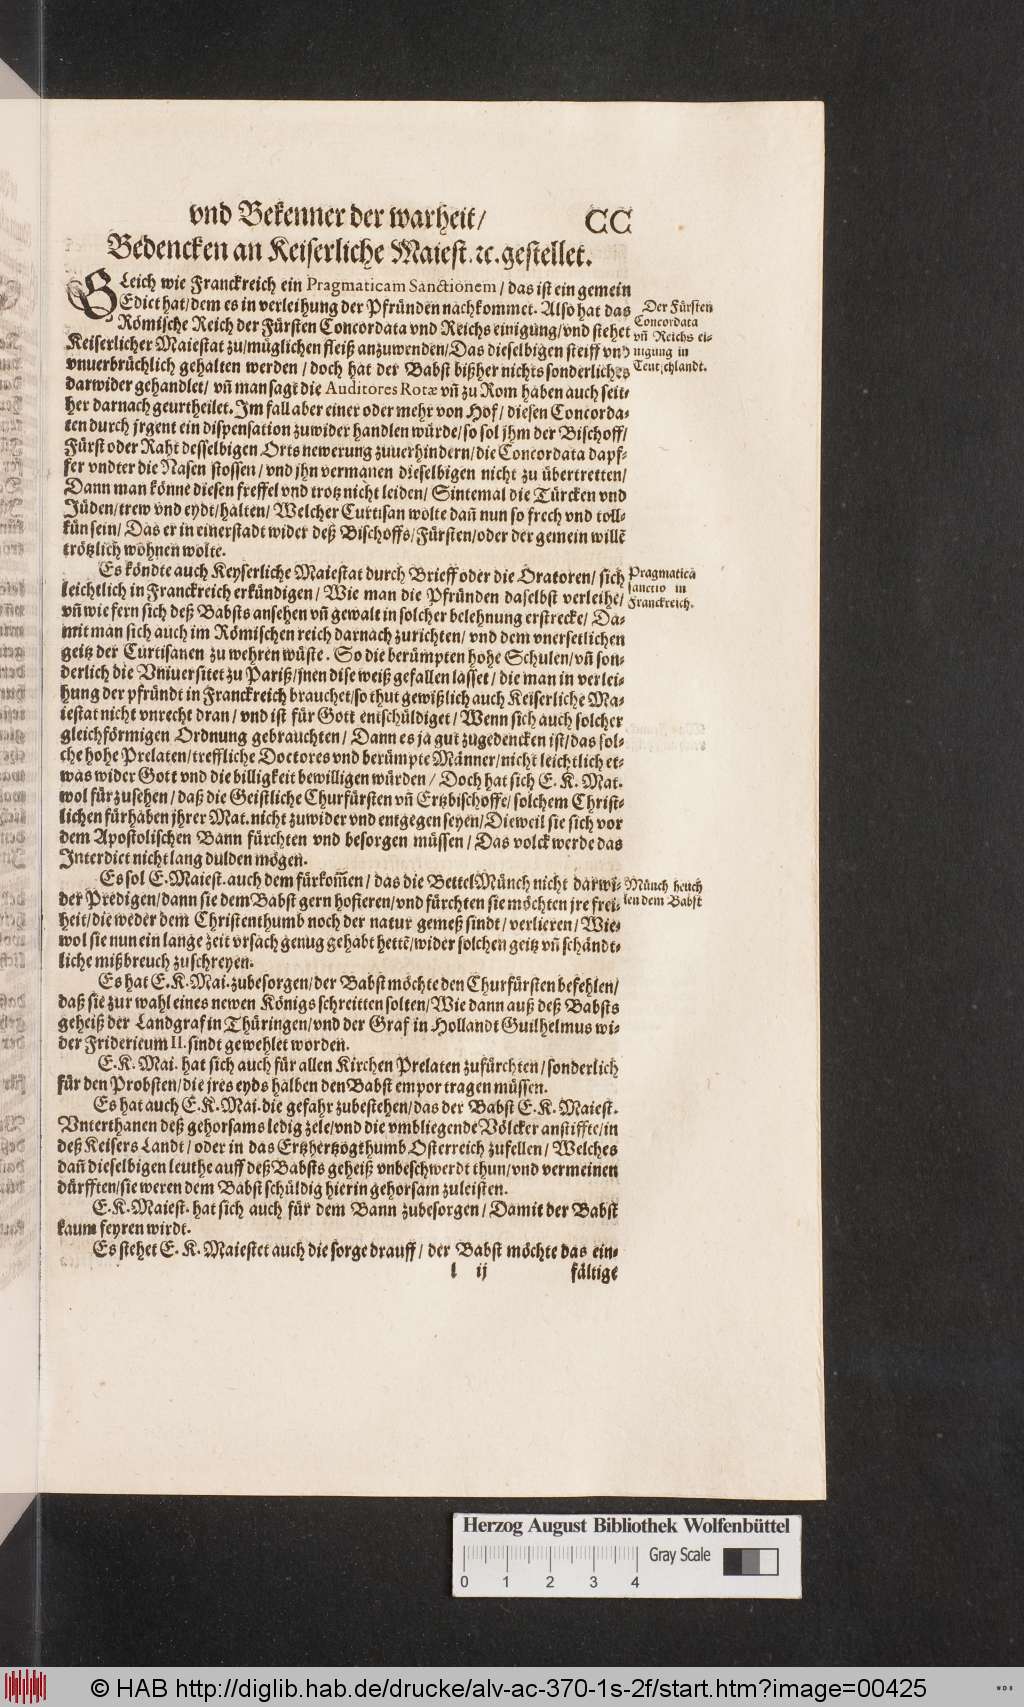 vnd Bekenner der warheit/ CC
Bedencken an Keiserliche Maiest. ꝛc. gestellet.
GLeich wie Franckreich ein Pragmaticam Sanctionem / das ist ein gemein
Edict hat/ dem es in verleihung der Pfründen nachkommet. Also hat das
Römische Reich der Fürsten Concordata vnd Reichs einigung/ vnd stehet
Keiserlicher Maiestat zu/ müglichen fleiß anzuwenden/ Das dieselbigen steiff vnd
vnuerbrüchlich gehalten werden / doch hat der Babst bißher nichts sonderliches
darwider gehandlet/ vñ man sagt die Auditores Rotæ vñ zu Rom haben auch seit-
her darnach geurtheilet. Im fall aber einer oder mehr von Hof/ diesen Concorda-
ten durch jrgent ein dispensation zuwider handlen würde/ so sol jhm der Bischoff/
Fürst oder Raht desselbigen Orts newerung zuuerhindern/ die Concordata dapf-
fer vndter die Nasen stossen / vnd jhn vermanen dieselbigen nicht zu übertretten/
Dann man könne diesen freffel vnd trotz nicht leiden/ Sintemal die Türcken vnd
Jüden/ trew vnd eydt/ halten/ Welcher Curtisan wolte dañ nun so frech vnd toll-
kün sein/ Das er in einer stadt wider deß Bischoffs/ Fürsten/ oder der gemein willẽ
trötzlich wohnen wolte.
Der Fürsten
Concordata
vñ Reichs ei-
nigung in
Teutschlandt.
Es köndte auch Keyserliche Maiestat durch Brieff oder die Oratoren/ sich
leichtlich in Franckreich erkündigen/ Wie man die Pfründen daselbst verleihe/
vñ wie fern sich deß Babsts ansehen vñ gewalt in solcher belehnung erstrecke/ Da-
mit man sich auch im Römischen reich darnach zurichten/ vnd dem vnersetlichen
geitz der Curtisanen zu wehren wüste. So die berümpten hohe Schulen/ vñ son-
derlich die Vniuersitet zu Pariß/ jnen dise weiß gefallen lasset / die man in verlei-
hung der pfründt in Franckreich brauchet/ so thut gewißlich auch Keiserliche Ma-
iestat nicht vnrecht dran / vnd ist für Gott entschüldiget / Wenn sich auch solcher
gleichförmigen Ordnung gebrauchten/ Dann es ja gut zugedencken ist/ das sol-
che hohe Prelaten/ treffliche Doctores vnd berümpte Männer/ nicht leichtlich et-
was wider Gott vnd die billigkeit bewilligen würden / Doch hat sich E. K. Mat.
wol fürzusehen/ daß die Geistliche Churfürsten vñ Ertzbischoffe/ solchem Christ-
lichen fürhaben jhrer Mat. nicht zuwider vnd entgegen seyen/ Dieweil sie sich vor
dem Apostolischen Bann fürchten vnd besorgen müssen / Das volck werde das
Interdict nicht lang dulden mögen.
Pragmatica
sanctio in
Franckreich.
Es sol E. Maiest. auch dem fürkom̃en / das die BettelMünch nicht darwi-
der Predigen/ dann sie dem Babst gern hofieren/ vnd fürchten sie möchten jre frei-
heit/ die weder dem Christenthumb noch der natur gemeß sindt/ verlieren/ Wie-
wol sie nun ein lange zeit vrsach genug gehabt hettẽ/ wider solchen geitz vñ schändt-
liche mißbreuch zuschreyen.
Münch heuch
len dem Babst
Es hat E. K. Mai. zubesorgen/ der Babst möchte den Churfürsten befehlen/
daß sie zur wahl eines newen Königs schreitten solten/ Wie dann auß deß Babsts
geheiß der Landgraf in Thüringen/ vnd der Graf in Hollandt Guilhelmus wi-
der Fridericum II. sindt gewehlet worden.
E. K. Mai. hat sich auch für allen Kirchen Prelaten zufürchten/ sonderlich
für den Probsten/ die jres eyds halben den Babst empor tragen müssen.
Es hat auch E. K. Mai. die gefahr zubestehen/ das der Babst E. K. Maiest.
Vnterthanen deß gehorsams ledig zele/ vnd die vmbliegende Völcker anstiffte/ in
deß Keisers Landt / oder in das Ertzhertzogthumb Osterreich zufellen / Welches
dañ dieselbigen leuthe auff deß Babsts geheiß vnbeschwerdt thun/ vnd vermeinen
dürfften/ sie weren dem Babst schüldig hierin gehorsam zuleisten.
E. K. Maiest. hat sich auch für dem Bann zubesorgen / Damit der Babst
kaum feyren wirdt.
Es stehet E. K. Maiestet auch die sorge drauff / der Babst möchte das ein-
l ij fältige
Herzog August Bibliothek Wolfenbüttel
Gray Scale
0 1 2 3 4
© HAB http://diglib.hab.de/drucke/alv-ac-370-1s-2f/start.htm?image=00425
WDB